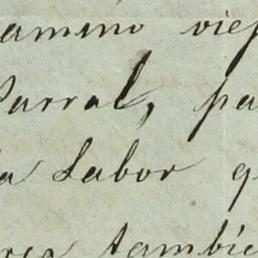 camino viej
Parral, pa
la Labor q
tambie